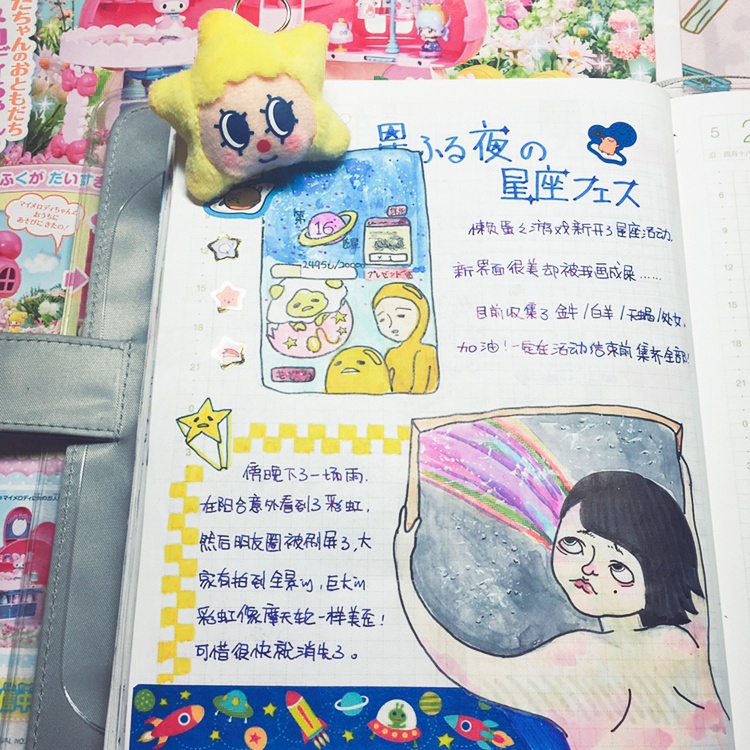 だちゃんのおともだち
ふくがだいす
マイメロディちゃんの
おうちに
あそびにきたの!
星ふる夜の
星座フェス
第
16
24956/20000
プレゼント
×1
懒蛋蛋之游戏新开了星座活动.
新界面很美却被我画成屎……
目前收集了金牛/白羊/天蝎/处女,
加油!一定在活动结束前集齐全部!
傍晚下了一场雨.
在阳台意外看到了彩虹,
然后朋友圈被刷屏了,大
家有拍到全景的,巨大的
彩虹像摩天轮一样美歪!
可惜很快就消失了。
5